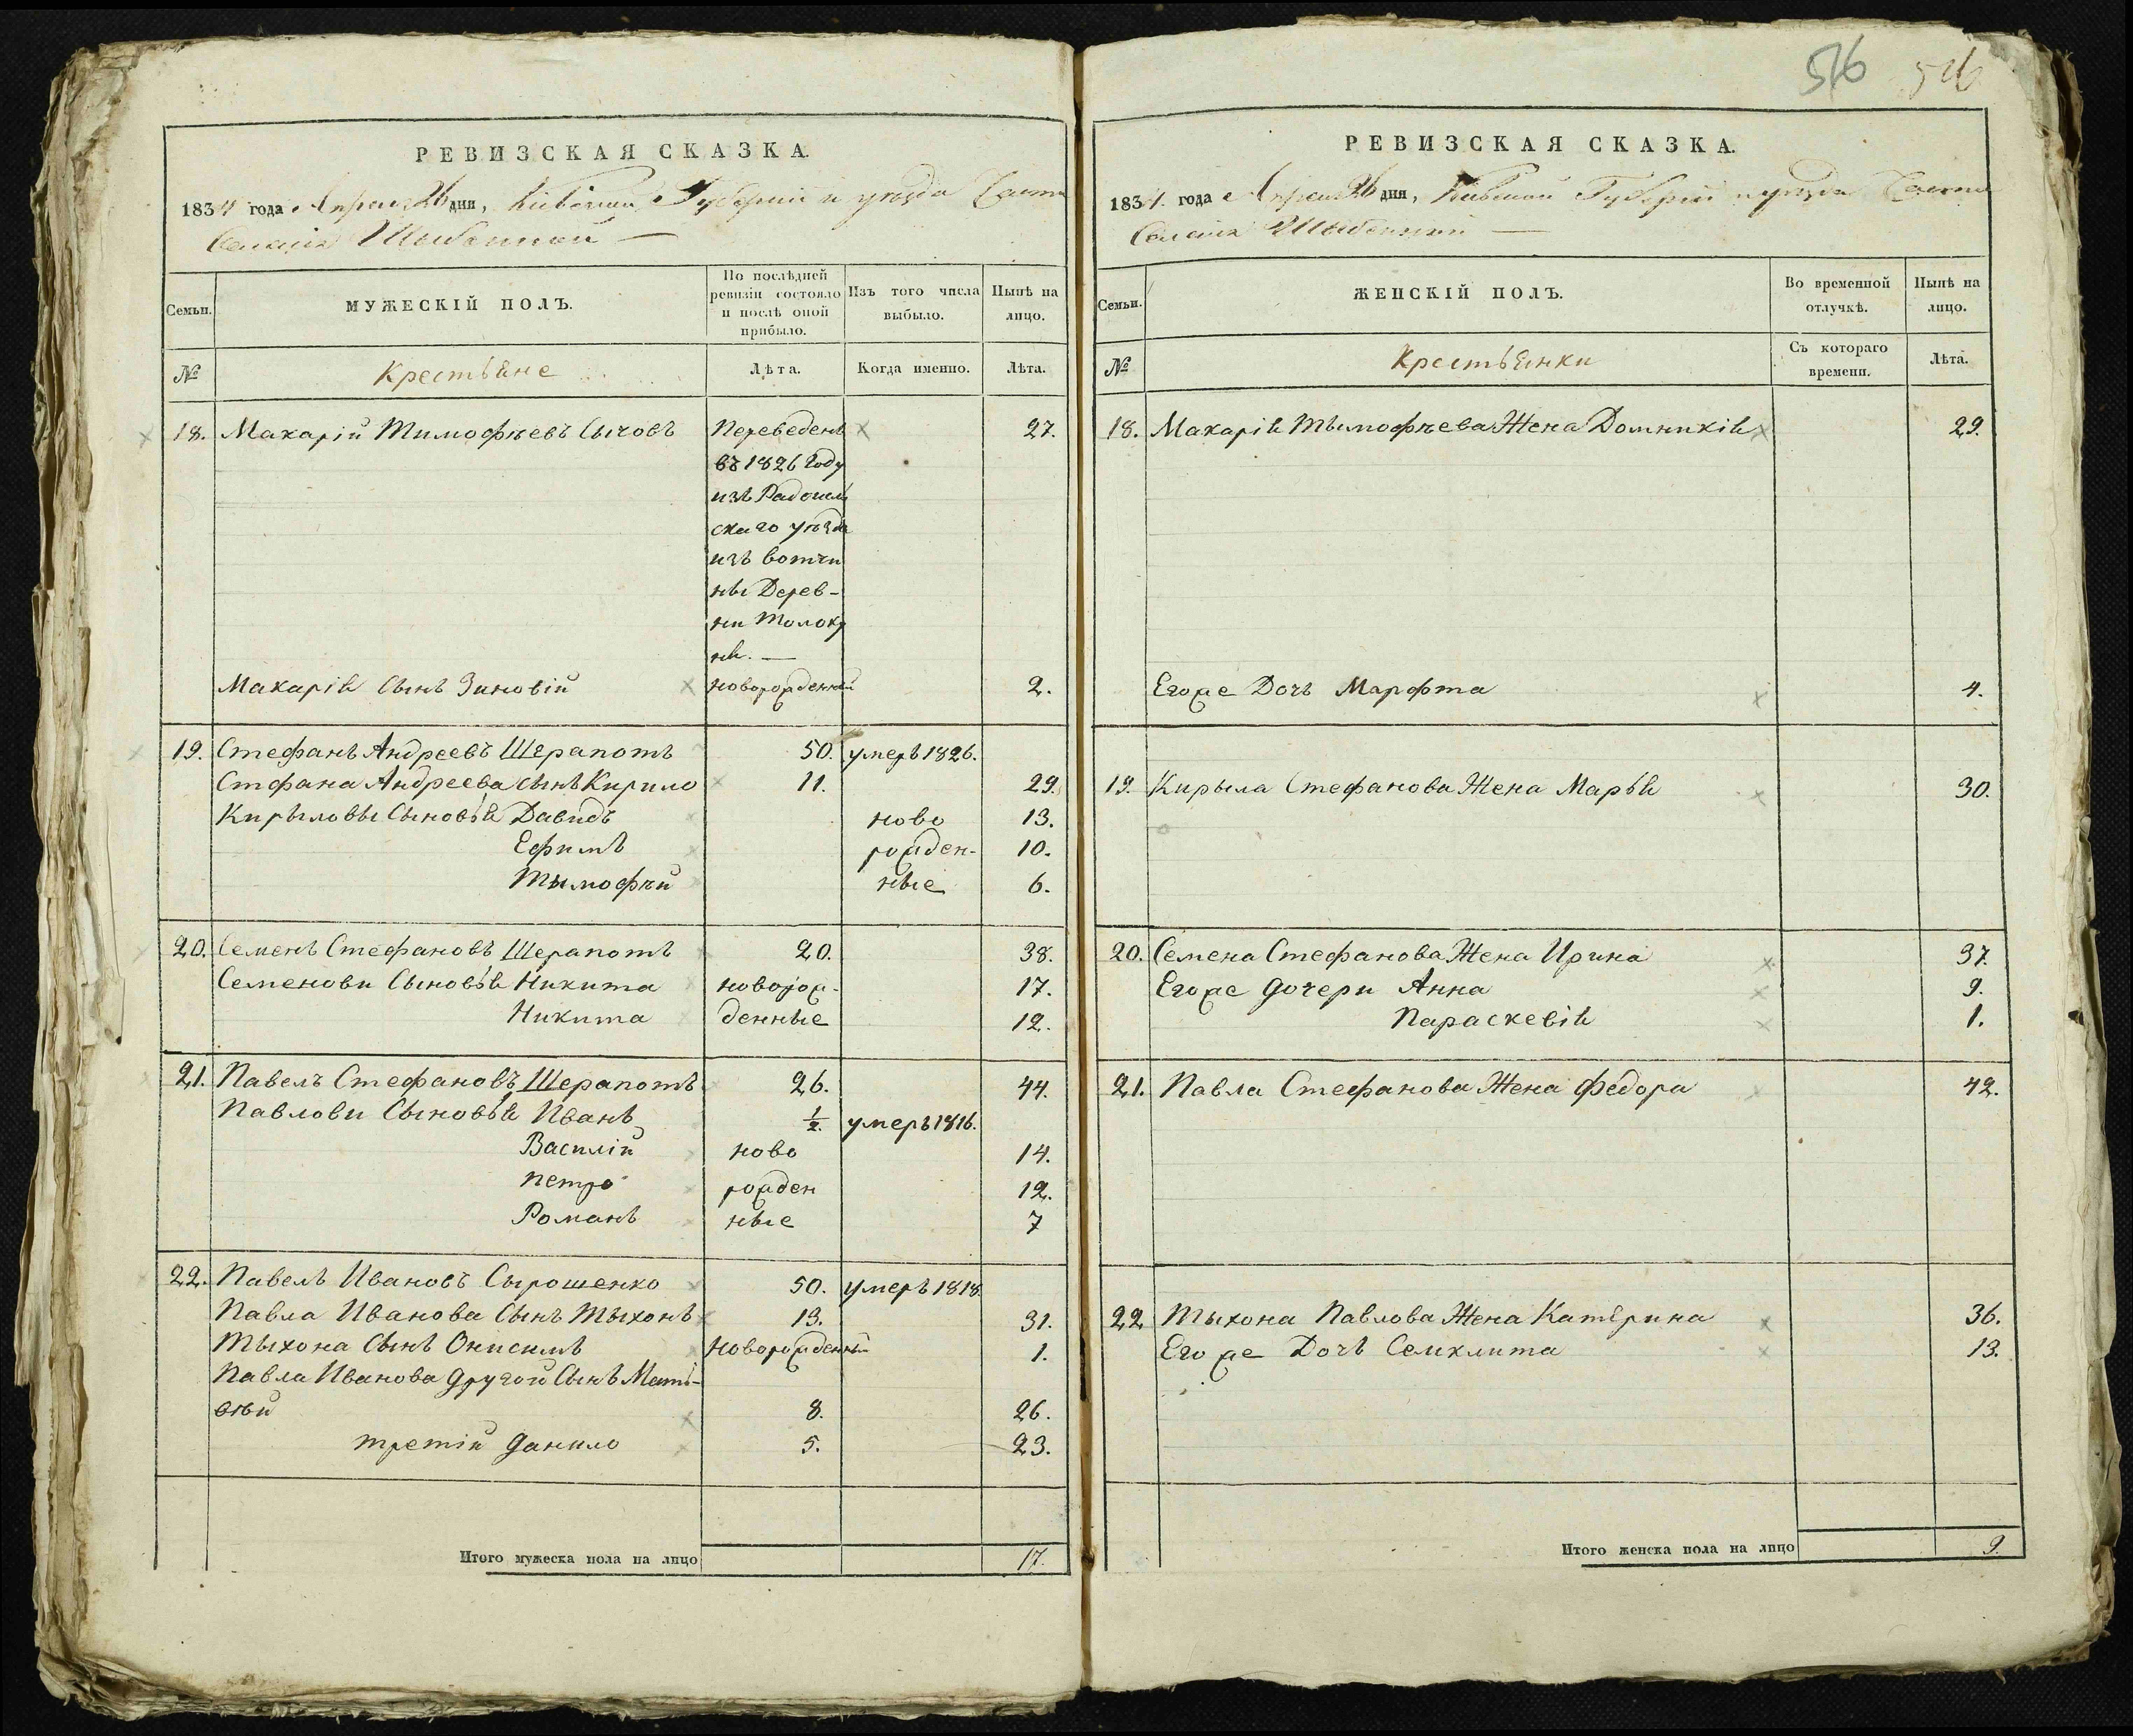 516 516
РЕВИЗСКАЯ СКАЗКА.
1834 года Апреля 26 дни, Киевской Губерніи и уезда Части
Селенія
Семьи.
МУЖЕСКІЙ ПОЛЪ.
По послѣдней ревизіи состояло и послѣ оной прибыло.
Изъ того числа выбыло.
Нынѣ на лицо.
№
Крестьяне
Лѣта.
Когда именно.
Лѣта.
18. Макарій Тимофѣевъ Сычовъ Переведенъ 27.
въ 1826 году
изъ Радомыль
скаго уѣзда
изъ вотчи
ны Дерев-
ни Толоку
нь. —
Макарія Сынъ Зиновій новорожденный 2.
19. Стефанъ Андреевъ Шерапотъ 50. умеръ 1826.
Стфана Андреева сынъ Кирило 11. 29.
Кирыловы Сыновья Давидъ ново 13.
Ефимъ рожден- 10.
Тымофѣй ные 6.
20. Семенъ Стефановъ Шерапотъ 20. 38.
Семенови Сыновья Никита новорож- 17.
Никита денные 12.
21. Павелъ Стефановъ Шерапотъ 26. 44.
Павлови Сыновья Иванъ ½. умеръ 1816.
Василій ново 14.
Петро рожден 12.
Романъ ные 7
22. Павелъ Ивановъ Сырошенко 50. умеръ 1818.
Павла Иванова Сынъ Тыхонъ 13. 31.
Тыхона Сынъ Онисимъ Новорожденный 1.
Павла Иванова другой Сынъ Мат-
вѣй 8. 26.
третій Данило 5. 23.
Итого мужеска пола на лицо 17.
РЕВИЗСКАЯ СКАЗКА.
1834. года Апреля 26 дня, Киевской Губерніи и уезда Части
Селенія
Семьи.
ЖЕНСКІЙ ПОЛЪ.
Во временной отлучкѣ.
Нынѣ на лицо.
№
Крестьянки
Съ котораго времени.
Лѣта.
18. Макарія Тымофѣева Жена Домникія 29.
Егоже Дочь Марфта 4.
19. Кирыла Стефанова Жена Марья 30.
20. Семена Стефанова Жена Ирина 37.
Егоже дочери Анна 9.
Параскевія 1.
21. Павла Стефанова Жена федора 42.
22 Тыхона Павлова Жена Катерина 36.
Егоже Дочь Семклита 13.
Итого женска пола на лицо 9.